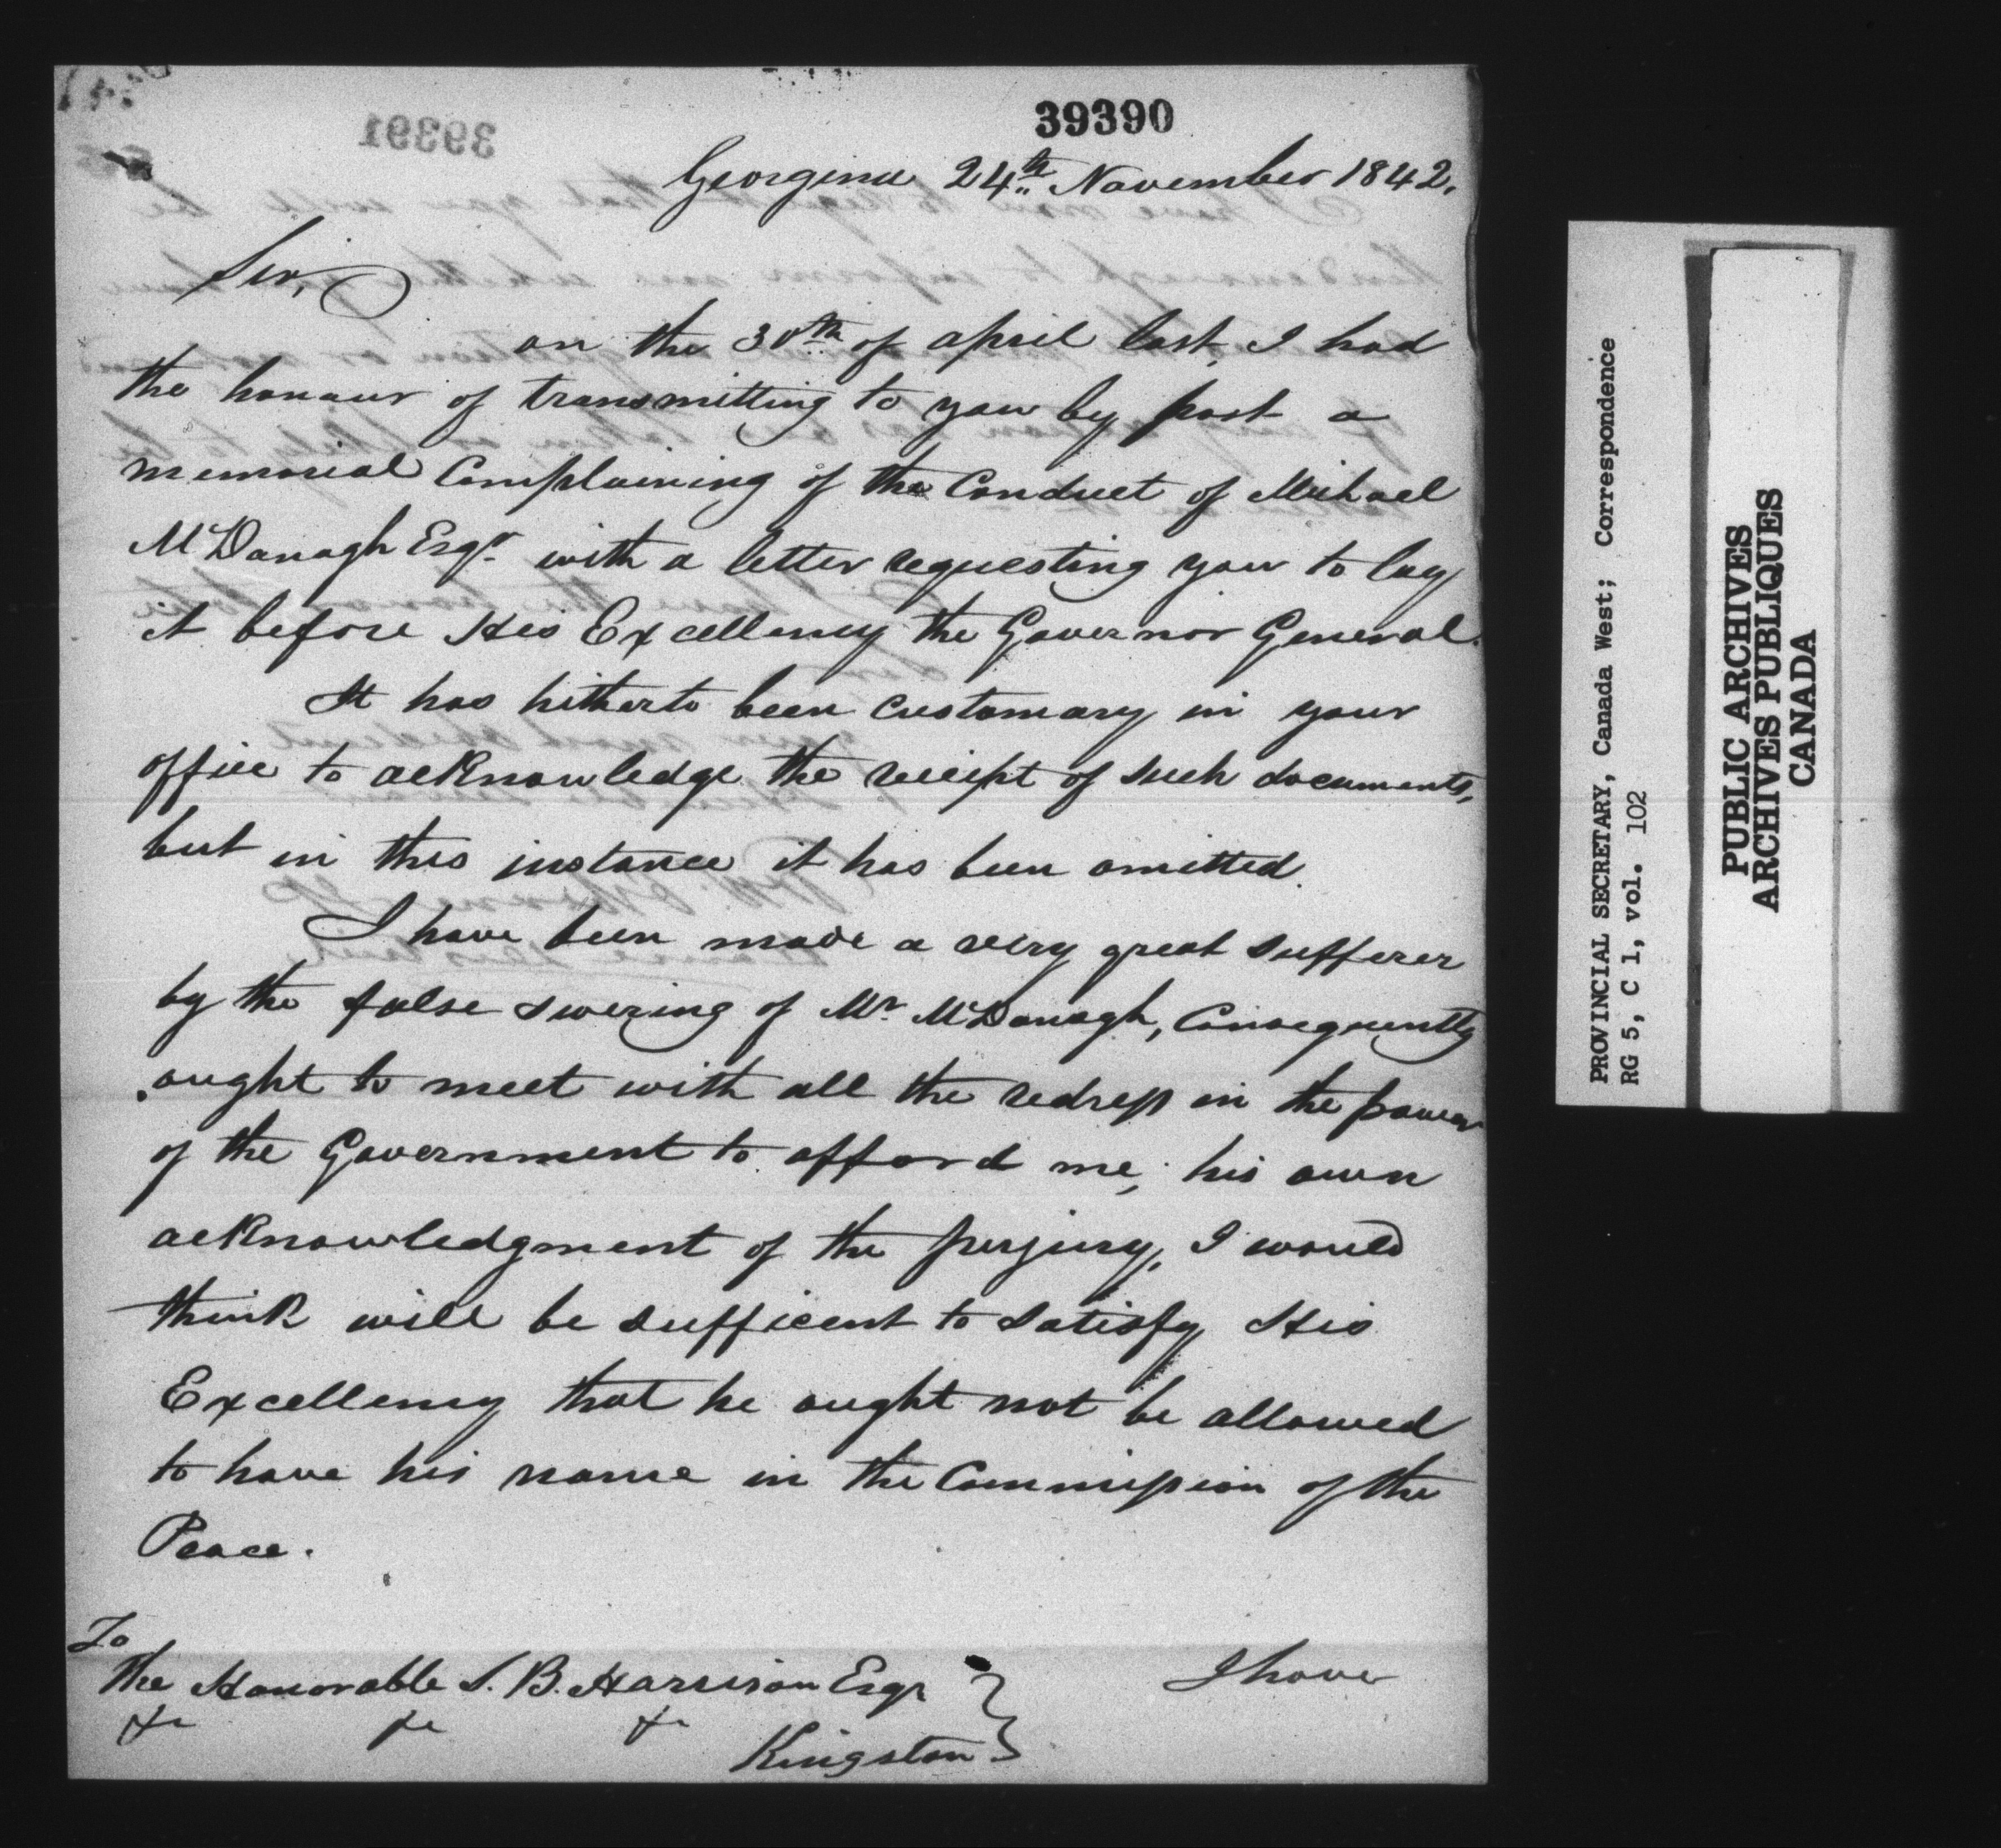 39390
39391
Georgina 24th November 1842.
Sir,
on the 30th of april last, I had
the honour of transmitting to you by post a
memorial Complaining of the Conduct of Michael
McDonagh Esqr. with a letter requesting you to lay
it before His Excellency the Governor General.
It has hitherto been customary in your
office to acknowledge the receipt of such documents,
but in this instance it has been omitted.
I have been made a very great sufferer
by the false swering of Mr McDonagh, Consequently
ought to meet with all the redress in the power
of the Government to afford me; his own
acknowledgment of the perjury, I would
think will be sufficent to satisfy His
Excellency that he ought not be allowed
to have his name in the Commission of the
Peace.
To
The Honorable S. B. Harrison Esqr
&c &c &c
Kingston
I have
PROVINCIAL SECRETARY, Canada West; Correspondence
RG 5, C 1, vol. 102
PUBLIC ARCHIVES
ARCHIVES PUBLIQUES
CANADA